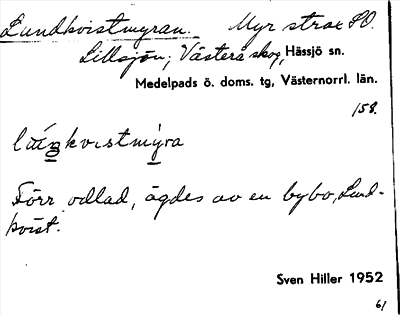 Lundkvistmyran. Myr strax SO.
Lillsjön, Västerå skog, Hässjö sn.
Medelpads ö. doms. tg, Västernorrl. län.
158.
kvistmýra
Förr odlad, ägdes av en bybo, Lund-
kvist.
Sven Hiller 1952
61